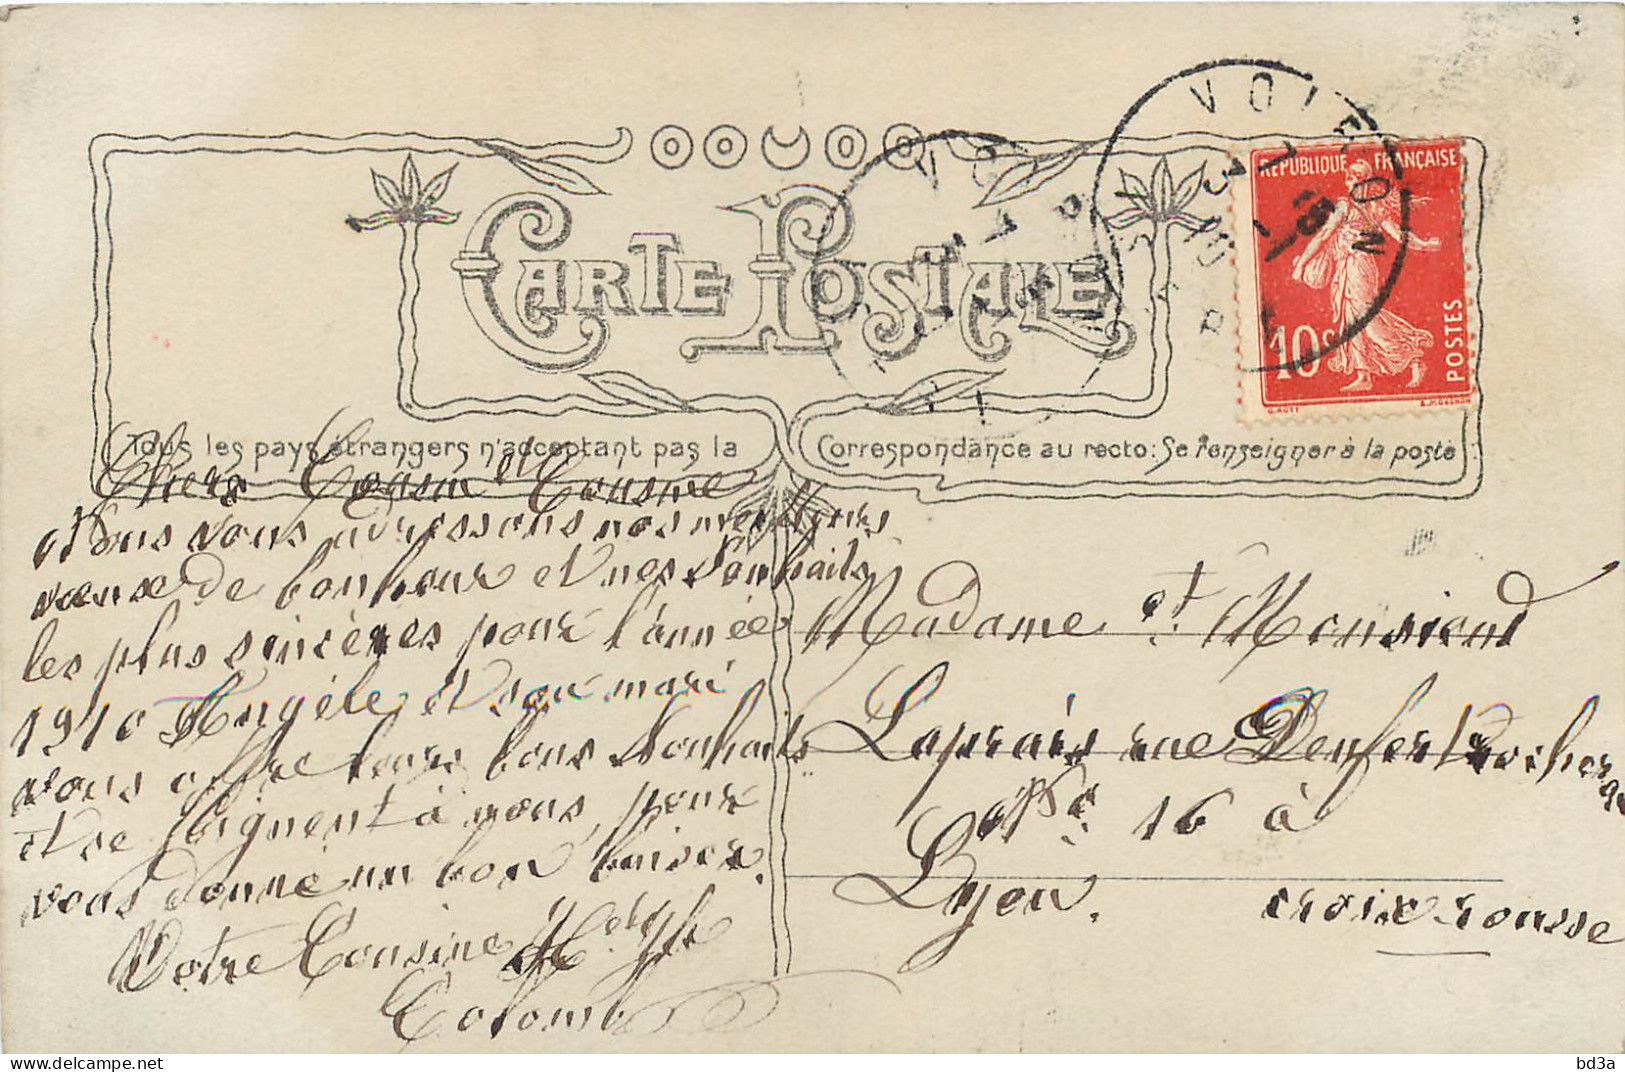 CARTE POSTALE
Tous les pays étrangers n'acceptant pas la
Correspondance au recto: Se renseigner à la poste
VOIRON
REPUBLIQUE FRANÇAISE
10c
POSTES
O. ROTY
E. MOUCHON
Chers Cousin et Cousine
Nous vous adressons nos meilleurs
vœuxe de bonheur et nes Souhaits
les plus sincères pour l'année
1910 Angéle et son mari
vous offre leurs bons Souhaits
et se joignent à nous, pour
vous donné un bon baiser.
Votre Cousine
Colomb
Madame et Monsieur
Laprais rue Denfert Rochereau
No 16 à
Lyon.
croix rousse
bd3a